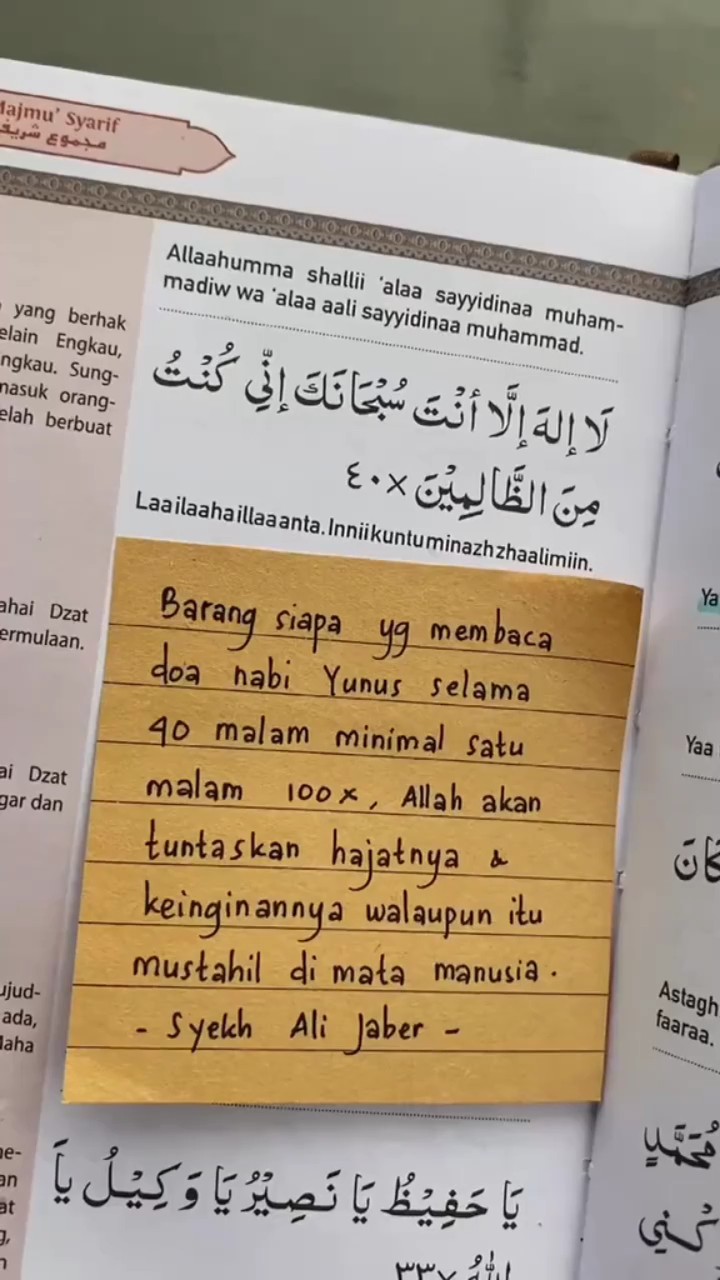 Majmu' Syarif
مجموع شريف
yang berhak
elain Engkau,
ngkau. Sung-
masuk orang-
elah berbuat
ahai Dzat
ermulaan.
ai Dzat
gar dan
ujud-
ada,
Maha
Allaahumma shallii 'alaa sayyidinaa muham-
madiw wa 'alaa aali sayyidinaa muhammad.
لَا إِلهَ إِلَّا أَنْتَ سُبْحَانَكَ إِنِّي كُنْتُ
مِنَ الظَّالِمِيْنَ ×٤٠
Laa ilaaha illaa anta. Innii kuntu minazh zhaalimiin.
Barang siapa yg membaca
doa nabi Yunus selama
40 malam minimal satu
malam 100x, Allah akan
tuntaskan hajatnya &
keinginannya walaupun itu
mustahil di mata manusia.
- Syekh Ali Jaber -
يَا حَفِيْظُ يَا نَصِيْرُ يَا وَكِيْلُ يَا
اللهُ ×٣٣
Ya
Yaa
كَانَ
Astagh
faaraa.
مُحَمَّدٍ